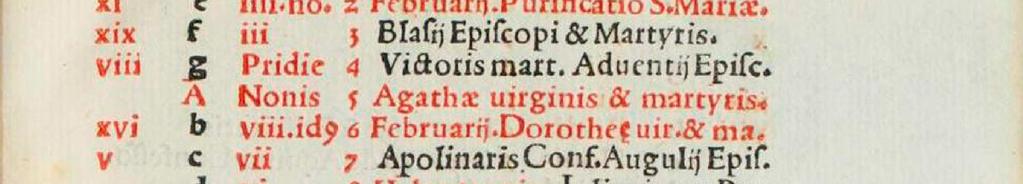 xi e iiii.no. 2 Februarij.Purificatio S.Mariæ.
xix f iii 3 Blaſij Epiſcopi & Martyris.
viii g Pridie 4 Victoris mart. Aduentij Epiſc.
A Nonis 5 Agathæ uirginis & martyris.
xvi b viii.idꝰ 6 Februarij.Dorotheę uir.& ma.
v c vii 7 Apolinaris Conf.Augulij Epiſ.